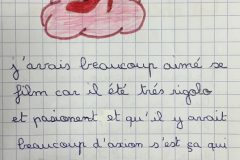 j'avais beaucoup aimé se
film car il été trés rigolo
et pasionent et qu'il y avait
beaucoup d'axion s'est ça qui